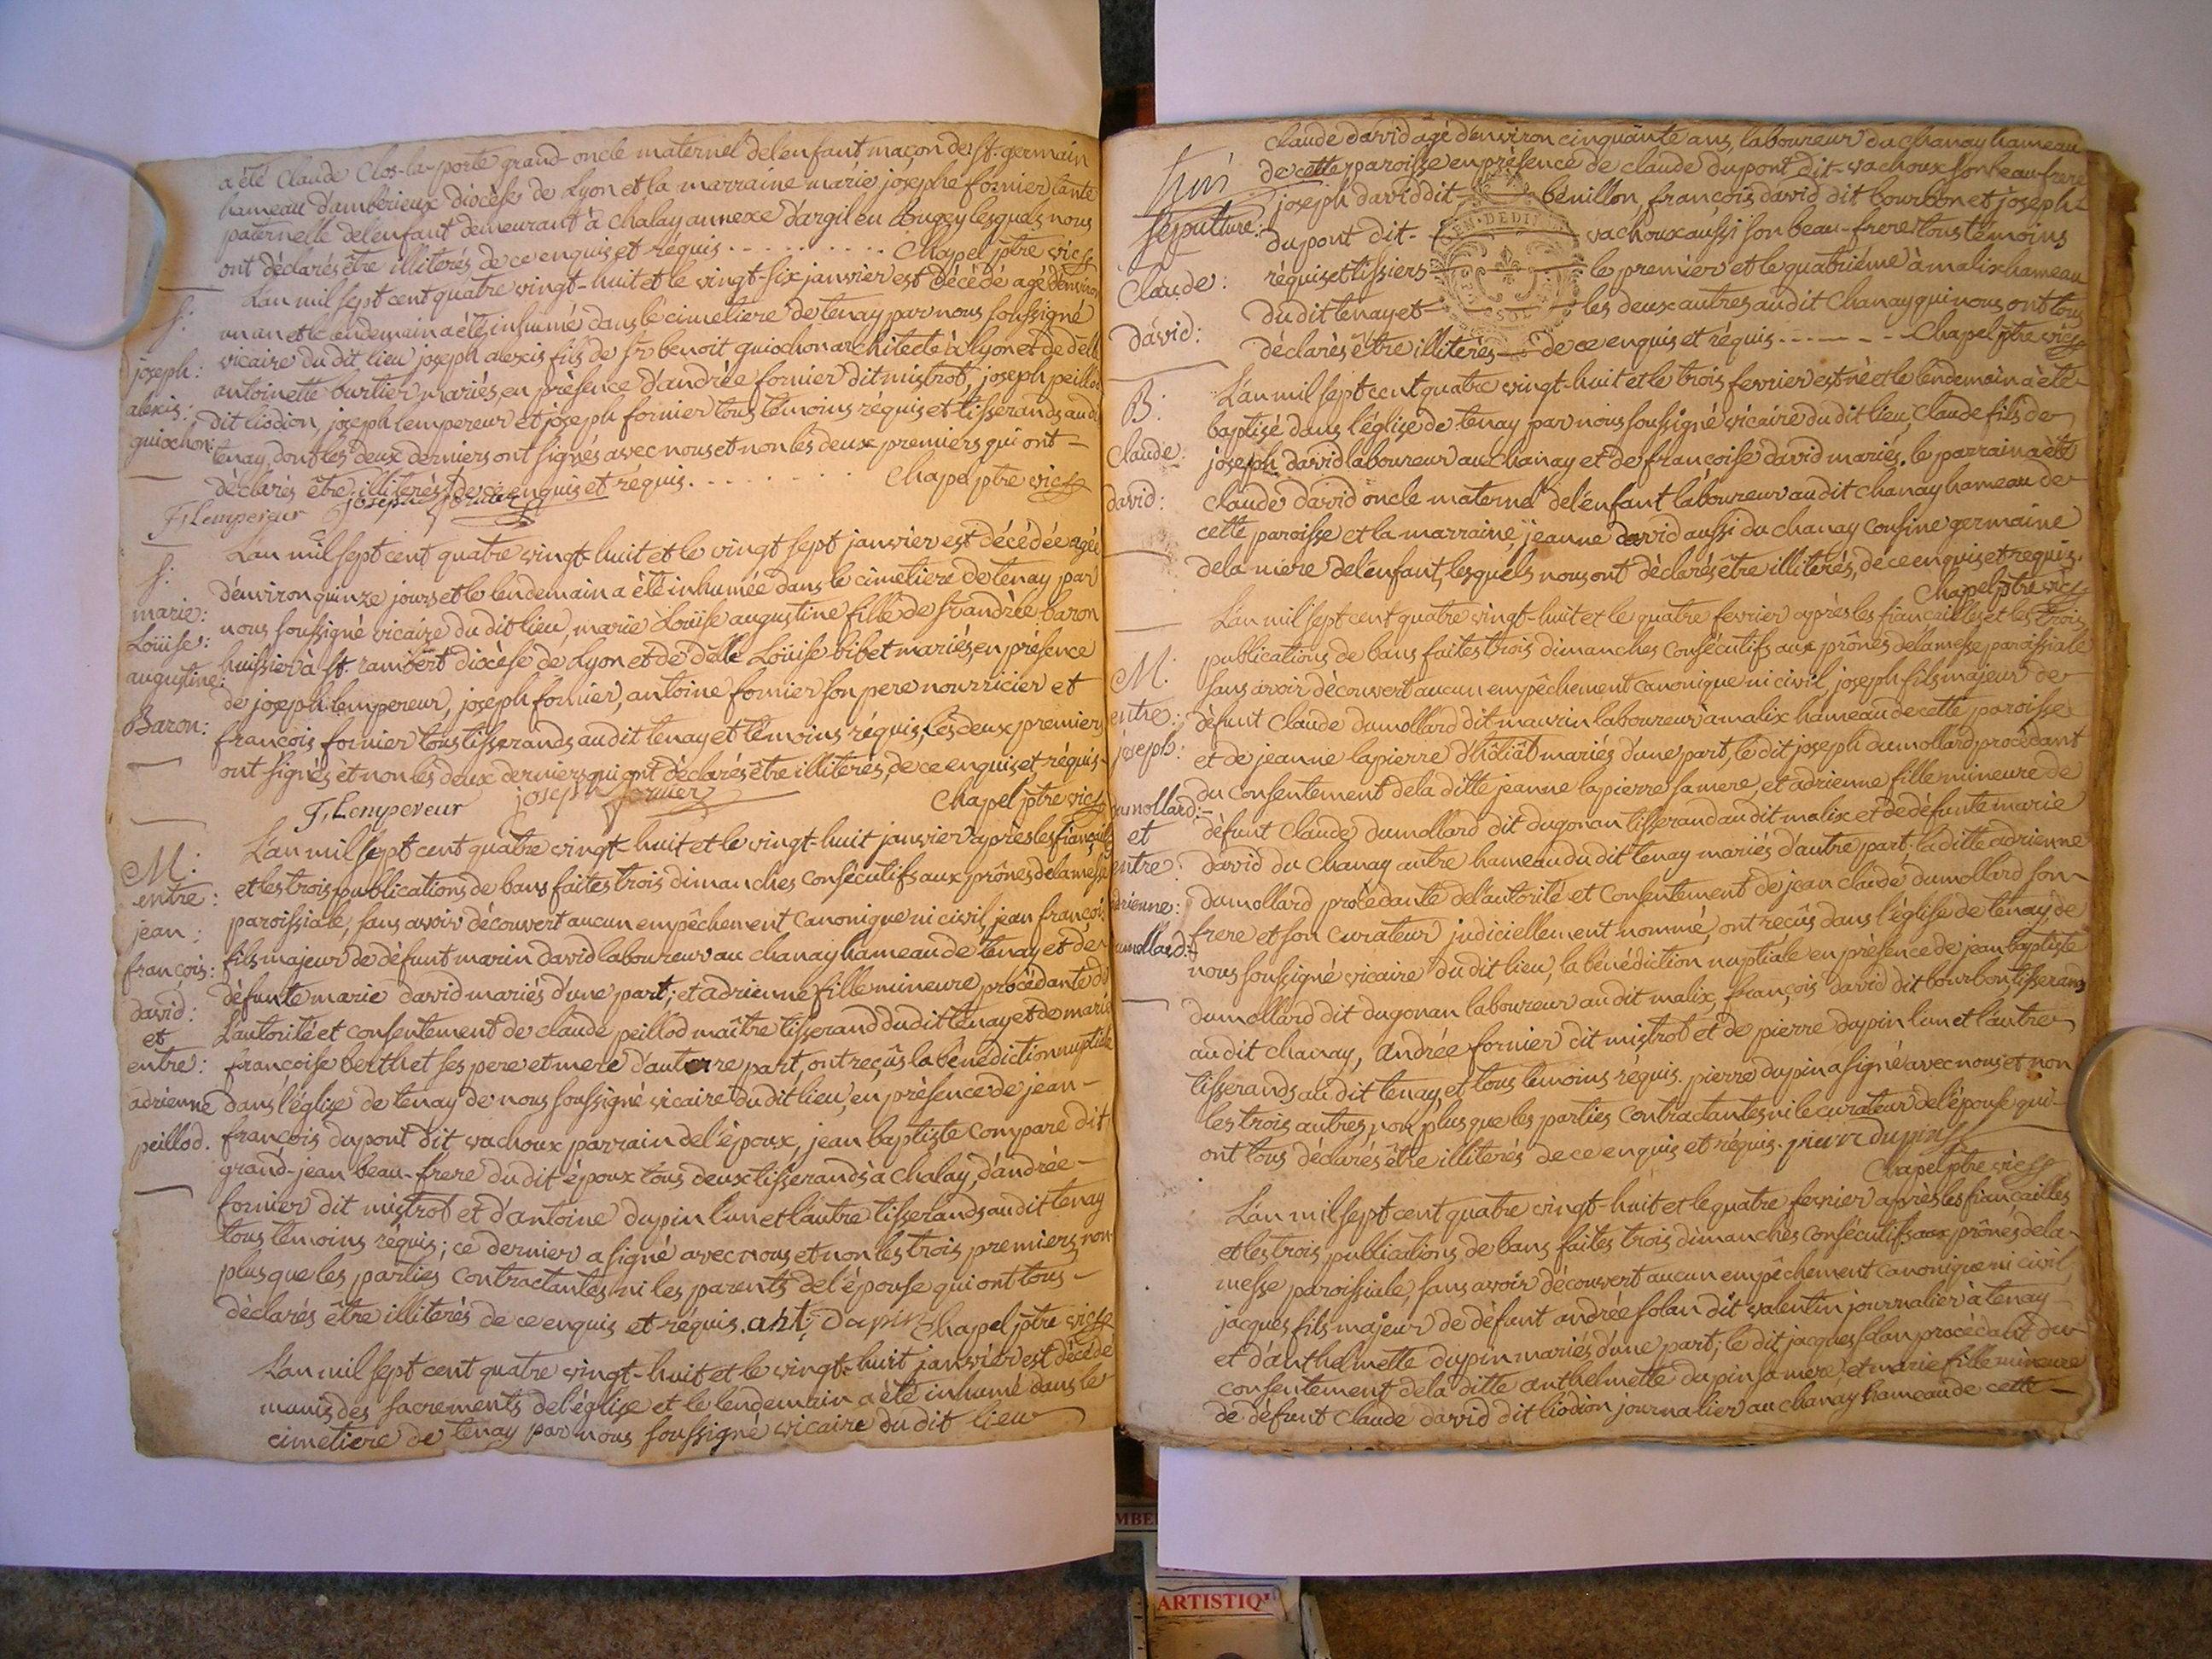 a été Claude Clos-la-porte grand-oncle maternel del'enfant maçon de st. germain
hameau d'ambérieux diócèse de Lyon et la marraine marie josephe fornier tante
paternelle del'enfant demeurant à chalay annexe d'argil en bugey lesquels nous
ont déclarés être illiterés de ce enquis et réquis . . . . . . . . Chapel ptre vic
S:
joseph:
alexis:
guiochon:
L'an mil sept cent quatre vingt-huit et le vingt-six janvier est décédé agé d'environ
un an et le lendemain a été inhumé dans le cimetiere de tenay par nous soussigné
vicaire du dit lieu joseph alexis fils de sr benoit guiochon architecte à lyon et de delle
antoinette burtier mariés en présence d'andrée fornier dit mistrot, joseph peillod
dit liodion, joseph lempereur et joseph fornier tous témoins réquis et tisserands au dit
tenay, dont les deux derniers ont signés avec nous et non les deux premiers qui ont
déclarés être illiterés de ce enquis et réquis. . . . . . . Chapel ptre vic
J, Lempereur joseph fornier
S:
marie:
Loüise:
augustine:
Baron:
L'an mil sept cent quatre vingt-huit et le vingt sept janvier est décédée agée
d'environ quinze jours et le lendemain a été inhumée dans le cimetiere de tenay par
nous soussigné vicaire du dit lieu, marie Loüise augustine fille de sr andrée baron
huissier à st. rambert diocèse de Lyon et de delle Loüise bibet mariés, en présence
de joseph lempereur, joseph fornier, antoine fornier son pere nourricier et
françois fornier tous tisserands au dit tenay et témoins réquis, les deux premiers
ont signés et non les deux derniers qui ont déclarés être illiterés, de ce enquis et réquis
J, Lempereur joseph fornier Chapel ptre vic
M:
entre:
jean:
françois:
david:
et
entre:
adrienne
peillod.
L'an mil sept cent quatre vingt-huit et le vingt-huit janvier après les fiançailles
et les trois publications de bans faites trois dimanches consécutifs aux prônes dela messe
paroissiale, sans avoir découvert aucun empêchement canonique ni civil, jean françois
fils majeur de défunt marin david laboureur au chanay hameau de tenay et de
défunte marie david mariés d'une part; et adrienne fille mineure procédante de
l'autorité et consentement de claude peillod maître tisserand du dit tenay et de marie
françoise berthet ses pere et mere d'autre part, ont reçûs la bénédiction nuptiale
dans l'église de tenay de nous soussigné vicaire du dit lieu, en présence de jean-
françois dupont dit vachoux parrain del'époux, jean baptiste compare dit
grand-jean beau-frere du dit époux tous deux tisserands à chalay, d'andrée
fornier dit mistrot et d'antoine dupin l'un et l'autre tisserands au dit tenay
tous témoins réquis; ce dernier a signé avec nous et non les trois premiers non-
plus que les parties contractantes ni les parents del'épouse qui ont tous
déclarés être illiterés de ce enquis et réquis. ant; Dupin Chapel ptre vic
L'an mil sept cent quatre vingt-huit et le vingt-huit janvier est décédé
munis des sacrements del'église et le lendemain a été inhumé dans le
cimetiere de tenay par nous soussigné vicaire du dit lieu
sépulture:
Claude:
david:
claude david agé d'environ cinquante ans, laboureur du chanay hameau
de cette paroisse en présence de claude dupont dit-vachoux son beau-frere
joseph david dit bénillon, françois david dit bourbon et joseph
dupont dit- vachoux aussi son beau-frere tous témoins
réquis et tissiers le premier et le quatriéme à malix hameau
du dit tenay et les deux autres au dit chanay qui nous ont tous
déclarés être illiterés de ce enquis et réquis . . . . Chapel ptre vic
B:
Claude:
david:
L'an mil sept cent quatre vingt-huit et le trois fevrier est né et le lendemain a été
baptisé dans l'église de tenay par nous soussigné vicaire du dit lieu, claude fils de
joseph david laboureur au chanay et de françoise david mariés. le parrain a été
claude david oncle maternel del'enfant laboureur au dit chanay hameau de
cette paroisse et la marraine jeanne david aussi du chanay cousine germaine
dela mere del'enfant, lesquels nous ont déclarés être illiterés, de ce enquis et requis.
Chapel ptre vic
M:
entre:
joseph:
dumollard:
et
entre:
adrienne:
dumollard:
L'an mil sept cent quatre vingt-huit et le quatre fevrier après les fiançailles et les trois
publications de bans faites trois dimanches consécutifs aux prônes dela messe paroissiale
sans avoir découvert aucun empêchement canonique ni civil, joseph fils majeur de
défunt claude dumollard dit maurin laboureur à malix hameau de cette paroisse
et de jeanne lapierre d'hôtiat mariés d'une part, le dit joseph dumollard procédant
du consentement dela ditte jeanne lapierre sa mere, et adrienne fille mineure de
défunt claude dumollard dit dugonan tisserand au dit malix et de défunte marie
david du chanay autre hameau du dit tenay mariés d'autre part. la ditte adrienne
dumollard procédante del'autorité et consentement de jean claude dumollard son
frere et son curateur judiciellement nommé, ont reçûs dans l'église de tenay de
nous soussigné vicaire du dit lieu, la bénédiction nuptiale en présence de jean baptiste
dumollard dit dugonan laboureur au dit malix, françois david dit bourbon tisserand
au dit chanay, andrée fornier dit mistrot et de pierre dupin l'un et l'autre
tisserands au dit tenay, et tous témoins réquis. pierre dupin a signé avec nous et non
les trois autres, non plus que les parties contractantes ni le curateur del'épouse qui
ont tous déclarés être illiterés de ce enquis et réquis. pierre dupin
Chapel ptre vic
L'an mil sept cent quatre vingt-huit et le quatre fevrier après les fiançailles
et les trois publications de bans faites trois dimanches consécutifs aux prônes dela
messe paroissiale, sans avoir découvert aucun empêchement canonique ni civil,
jacques fils majeur de défunt andrée solan dit valentin journalier à tenay
et d'anthelmette dupin mariés d'une part; le dit jacques solan procédant du
consentement dela ditte anthelmette dupin sa mere, et marie fille mineure
de défunt claude david dit liodion journalier au chanay hameau de cette
ARTISTIQ